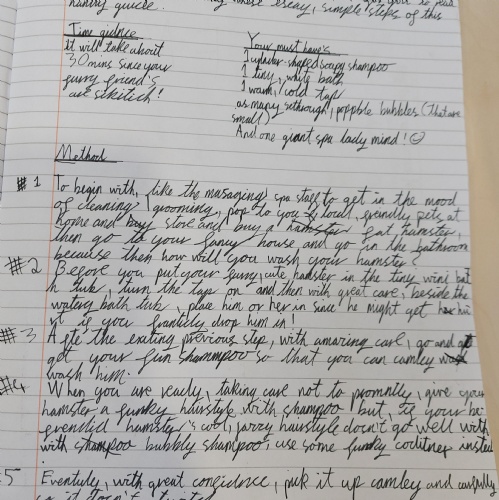 these essay, simple steps of this
Time guidence
it will take about
30 mins since your
furry friend's
are skitich!
Your must have's
1 cylinder-shaped soapy shampoo
1 tiny, white bath
1 warm, cold tap
as many seethrough, poppble bubbles (That are
small)
And one giant spa lady mind! ☺
Method
#1 To begin with, like the masaging spa stall to get in the mood
of cleaning, grooming, pop to you local, friendly pets at
home and buy store and buy a hamster fat hamster,
then go to your fancy house and go in the bathroom
because then how will you wash your hamster?
#2 Before you put your furry, cute hamster in the tiny, bat
h tub, turn the tap on and then with great care, beside the
watery bath tub, place him or her in since he might get
if you frantily drop him in!
#3 After the exiting previous step, with amazing care, go and
get your fun shammpoo so that you can camley
wash him.
#4 When you are ready, taking care not to promntly, give your
hamster a funky hairstyle with shampoo but, if your be
frendid hamster's cool, jazzy hairstyle doesn't go well with
with shampoo bubbly shampoo, use some funky instead
5 Eventuly, with great confidence, pick it up camley and carefully
so it doesn't